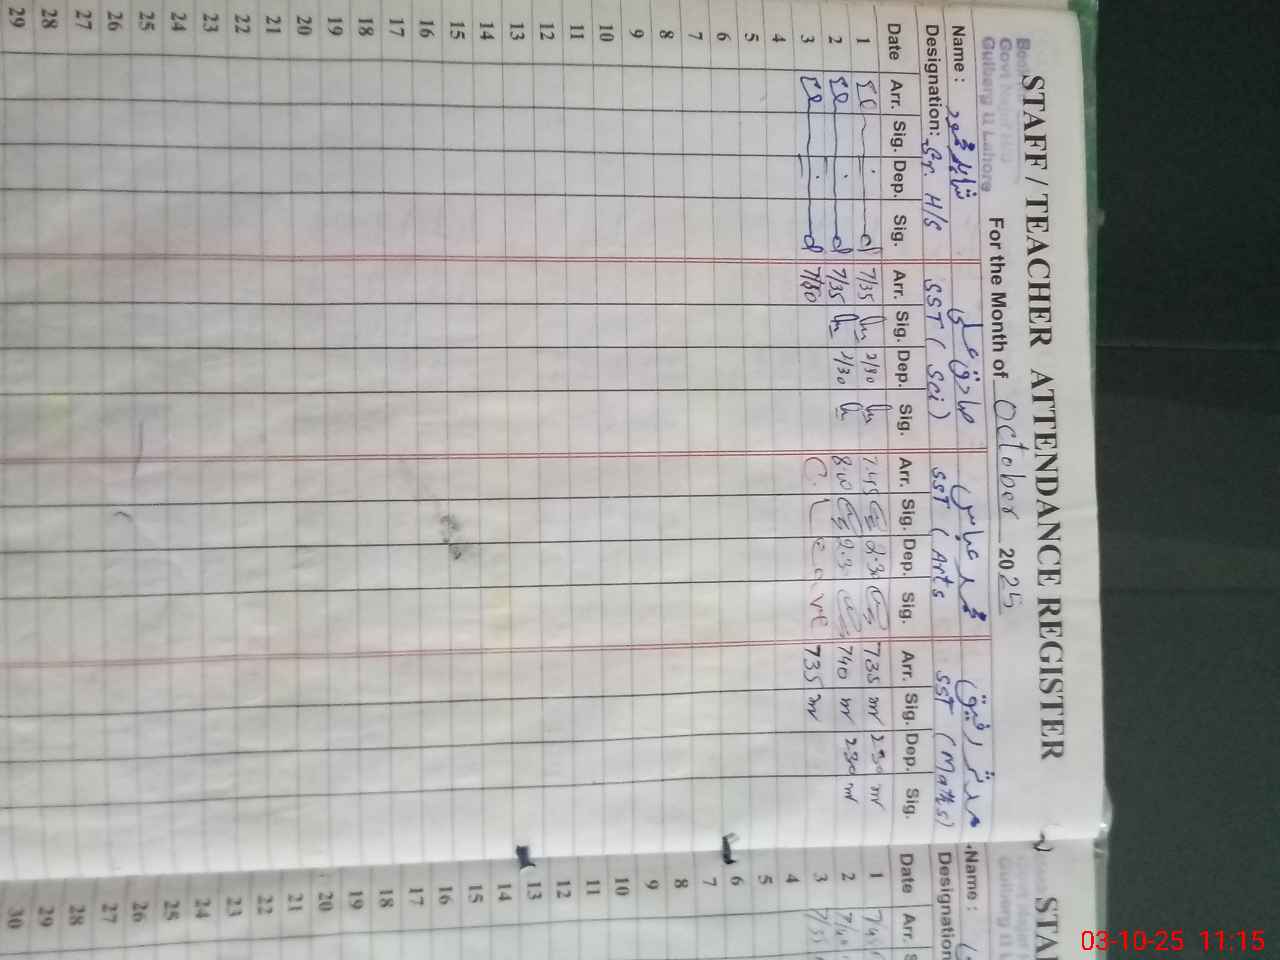 STAFF / TEACHER ATTENDANCE REGISTER
Govt
Gulberg II Lahore
For the Month of October 2025
Name : شاہد محمود صادق علی محمد عباس مدثر رفیق
Designation: Sr. H/S SST ( Sci ) SST ( Arts SST ( Maths )
Date Arr. Sig. Dep. Sig. Arr. Sig. Dep. Sig. Arr. Sig. Dep. Sig. Arr. Sig. Dep. Sig.
1 7/35 2/30 7.45 2.30 735 230
2 7/35 2/30 8.00 2.30 740 230
3 C. Leave 735
4
5
6
7
8
9
10
11
12
13
14
15
16
17
18
19
20
21
22
23
24
25
26
27
28
29
STA
Gulberg II
Name :
Designation
Date Arr.
1
2
3
4
5
6
7
8
9
10
11
12
13
14
15
16
17
18
19
20
21
22
23
24
25
26
27
28
29
30
03-10-25 11:15